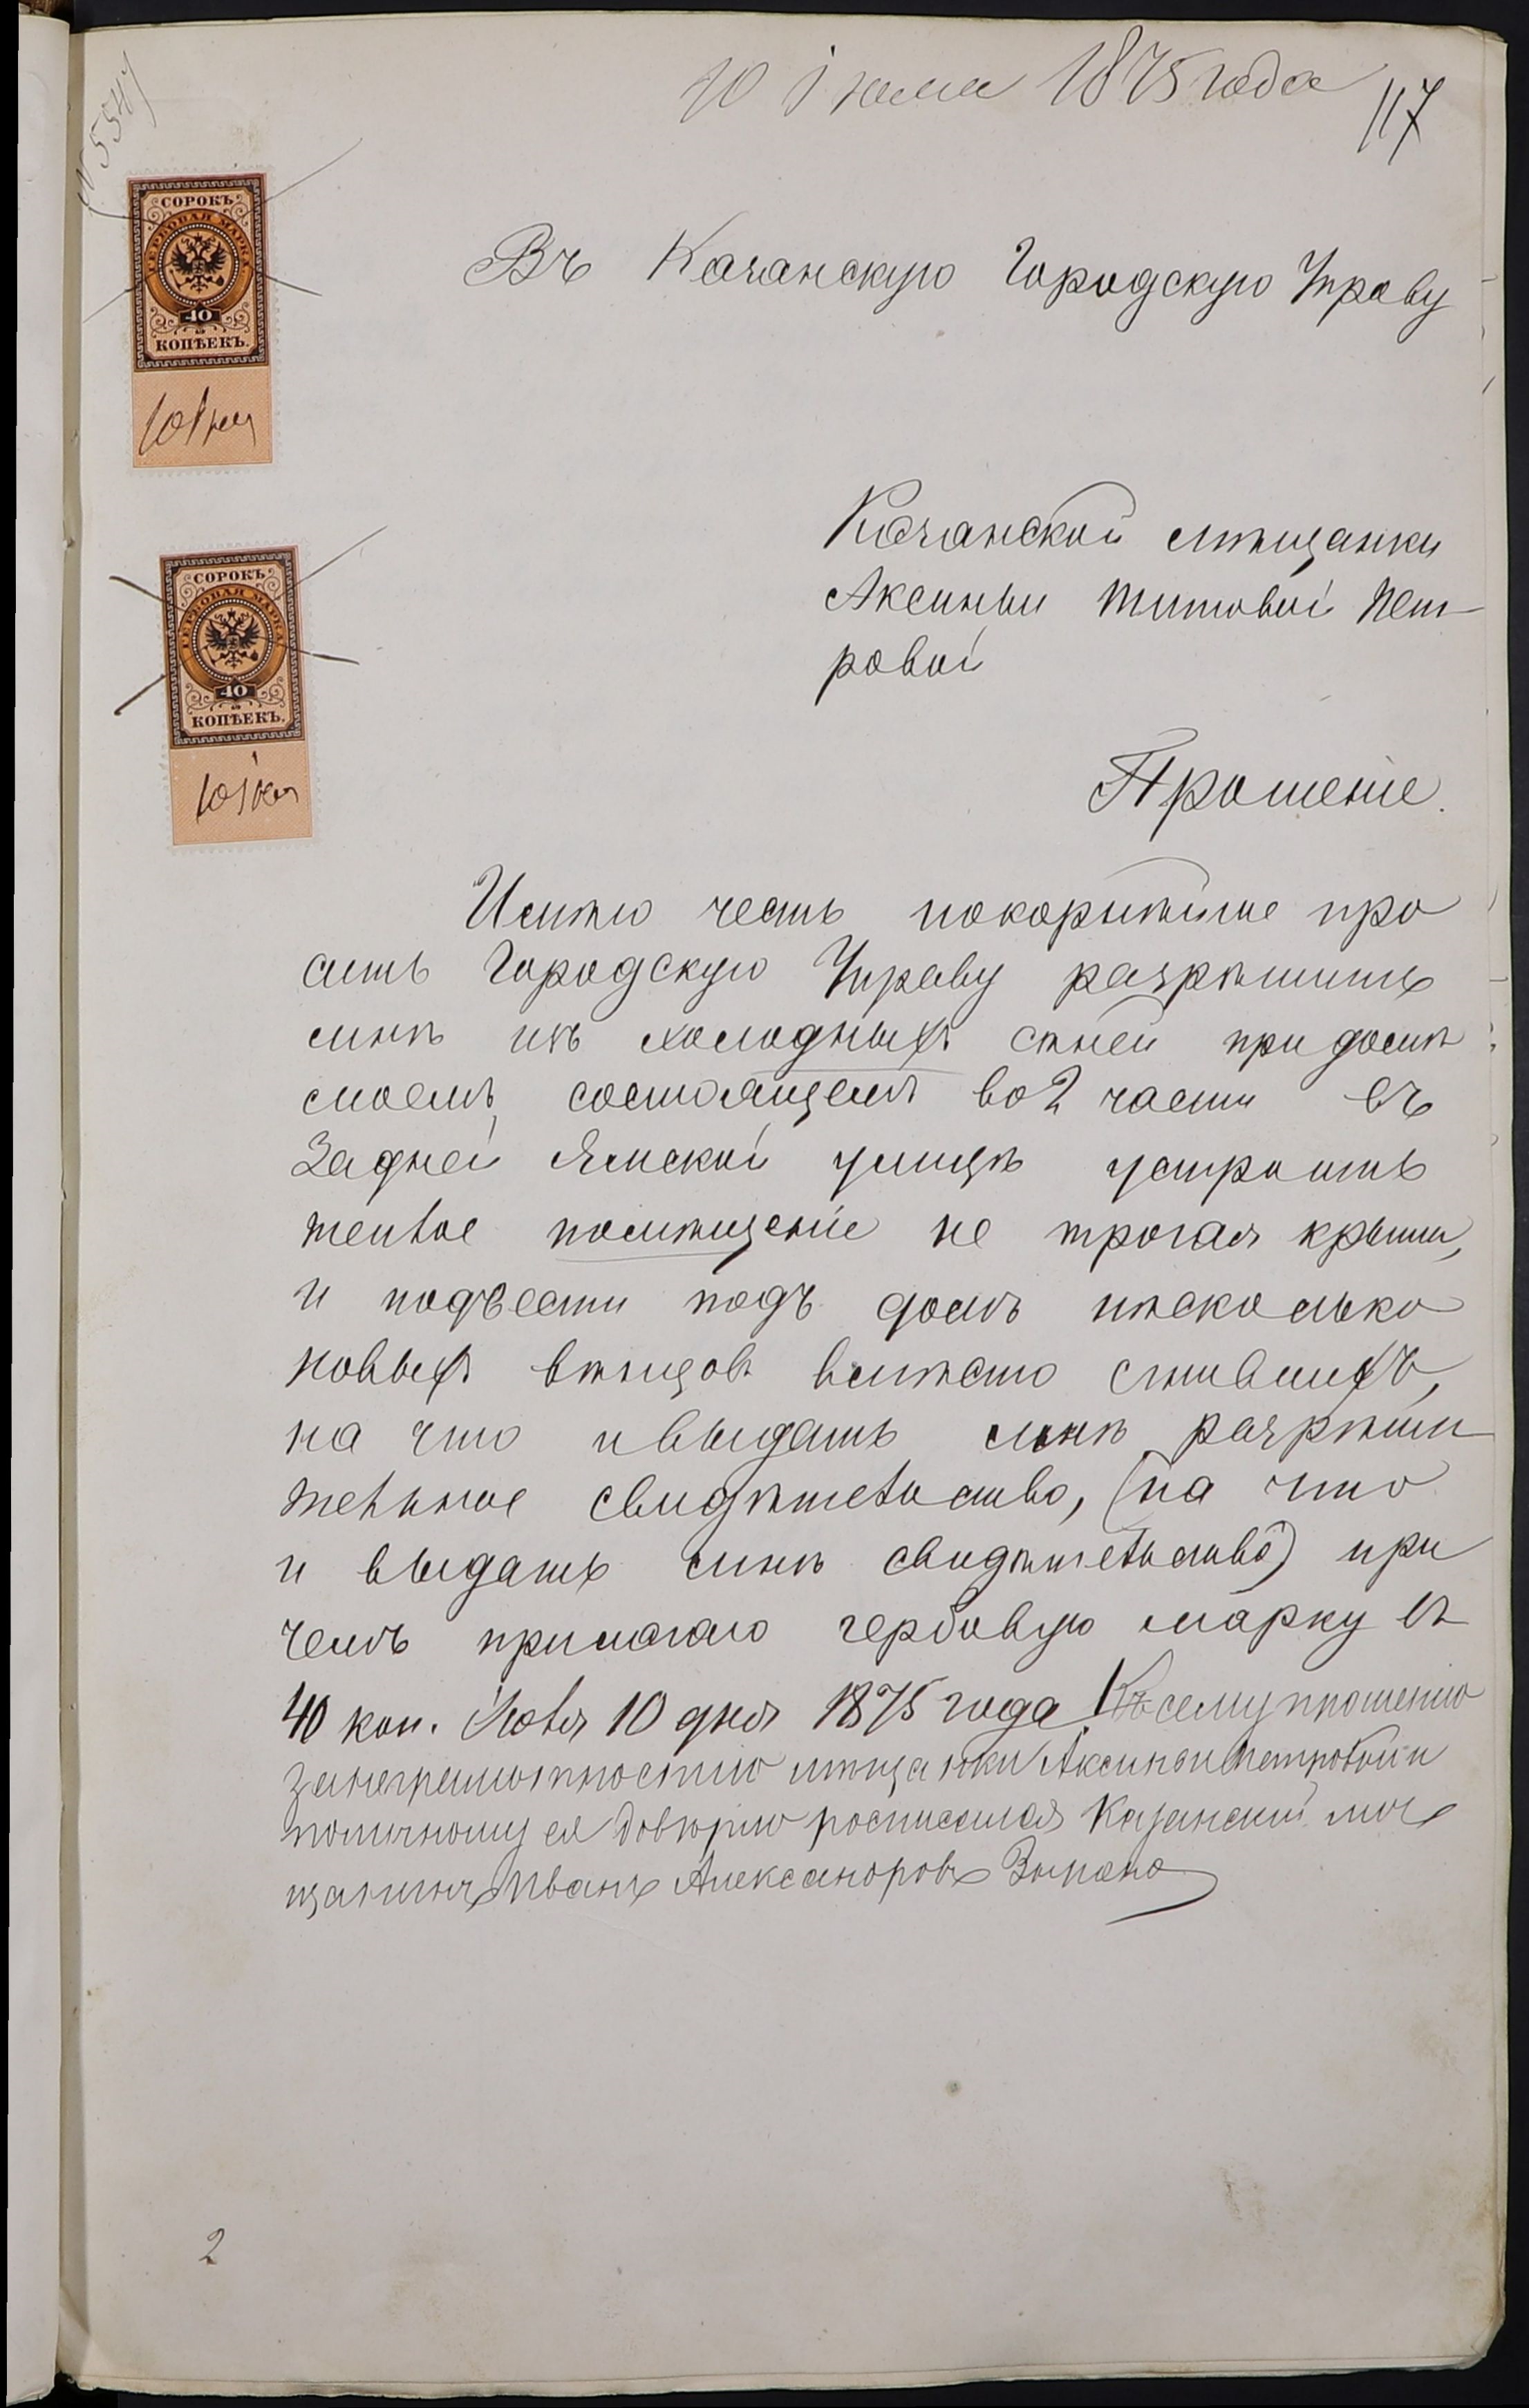 10 Іюля 1875 года
117
№ 5547
СОРОКЪ
ГЕРБОВАЯ МАРКА
40
КОПѢЕКЪ.
10 Іюля
Въ Казанскую Городскую Управу
СОРОКЪ
ГЕРБОВАЯ МАРКА
40
КОПѢЕКЪ.
10 Іюля
Казанской мѣщанки
Аксиньи Титовой Пет-
ровой
Прошеніе.
Имѣю честь покорнѣйше про
сить Городскую Управу разрѣшить
мнѣ изъ холодныхъ сѣней при домѣ
моемъ, состоящемъ во 2 части въ
Задней Ямской улицѣ устроить
теплое помѣщеніе не трогая крыши,
и подвести подъ домъ нѣсколько
новыхъ вѣнцовъ вмѣсто сгнившихъ,
на что и выдать мнѣ разрѣши
тельное свидѣтельство, (на что
и выдать мнѣ свидѣтельство) при
чемъ прилагаю гербовую марку въ
40 коп. Іюля 10 дня 1875 года Къ сему прошенію
занеграмотностію мѣщанки Аксиньи Петровой и
поличному ея довѣрію росписался Казанский мѣ
щанинъ Иванъ Александровъ
2